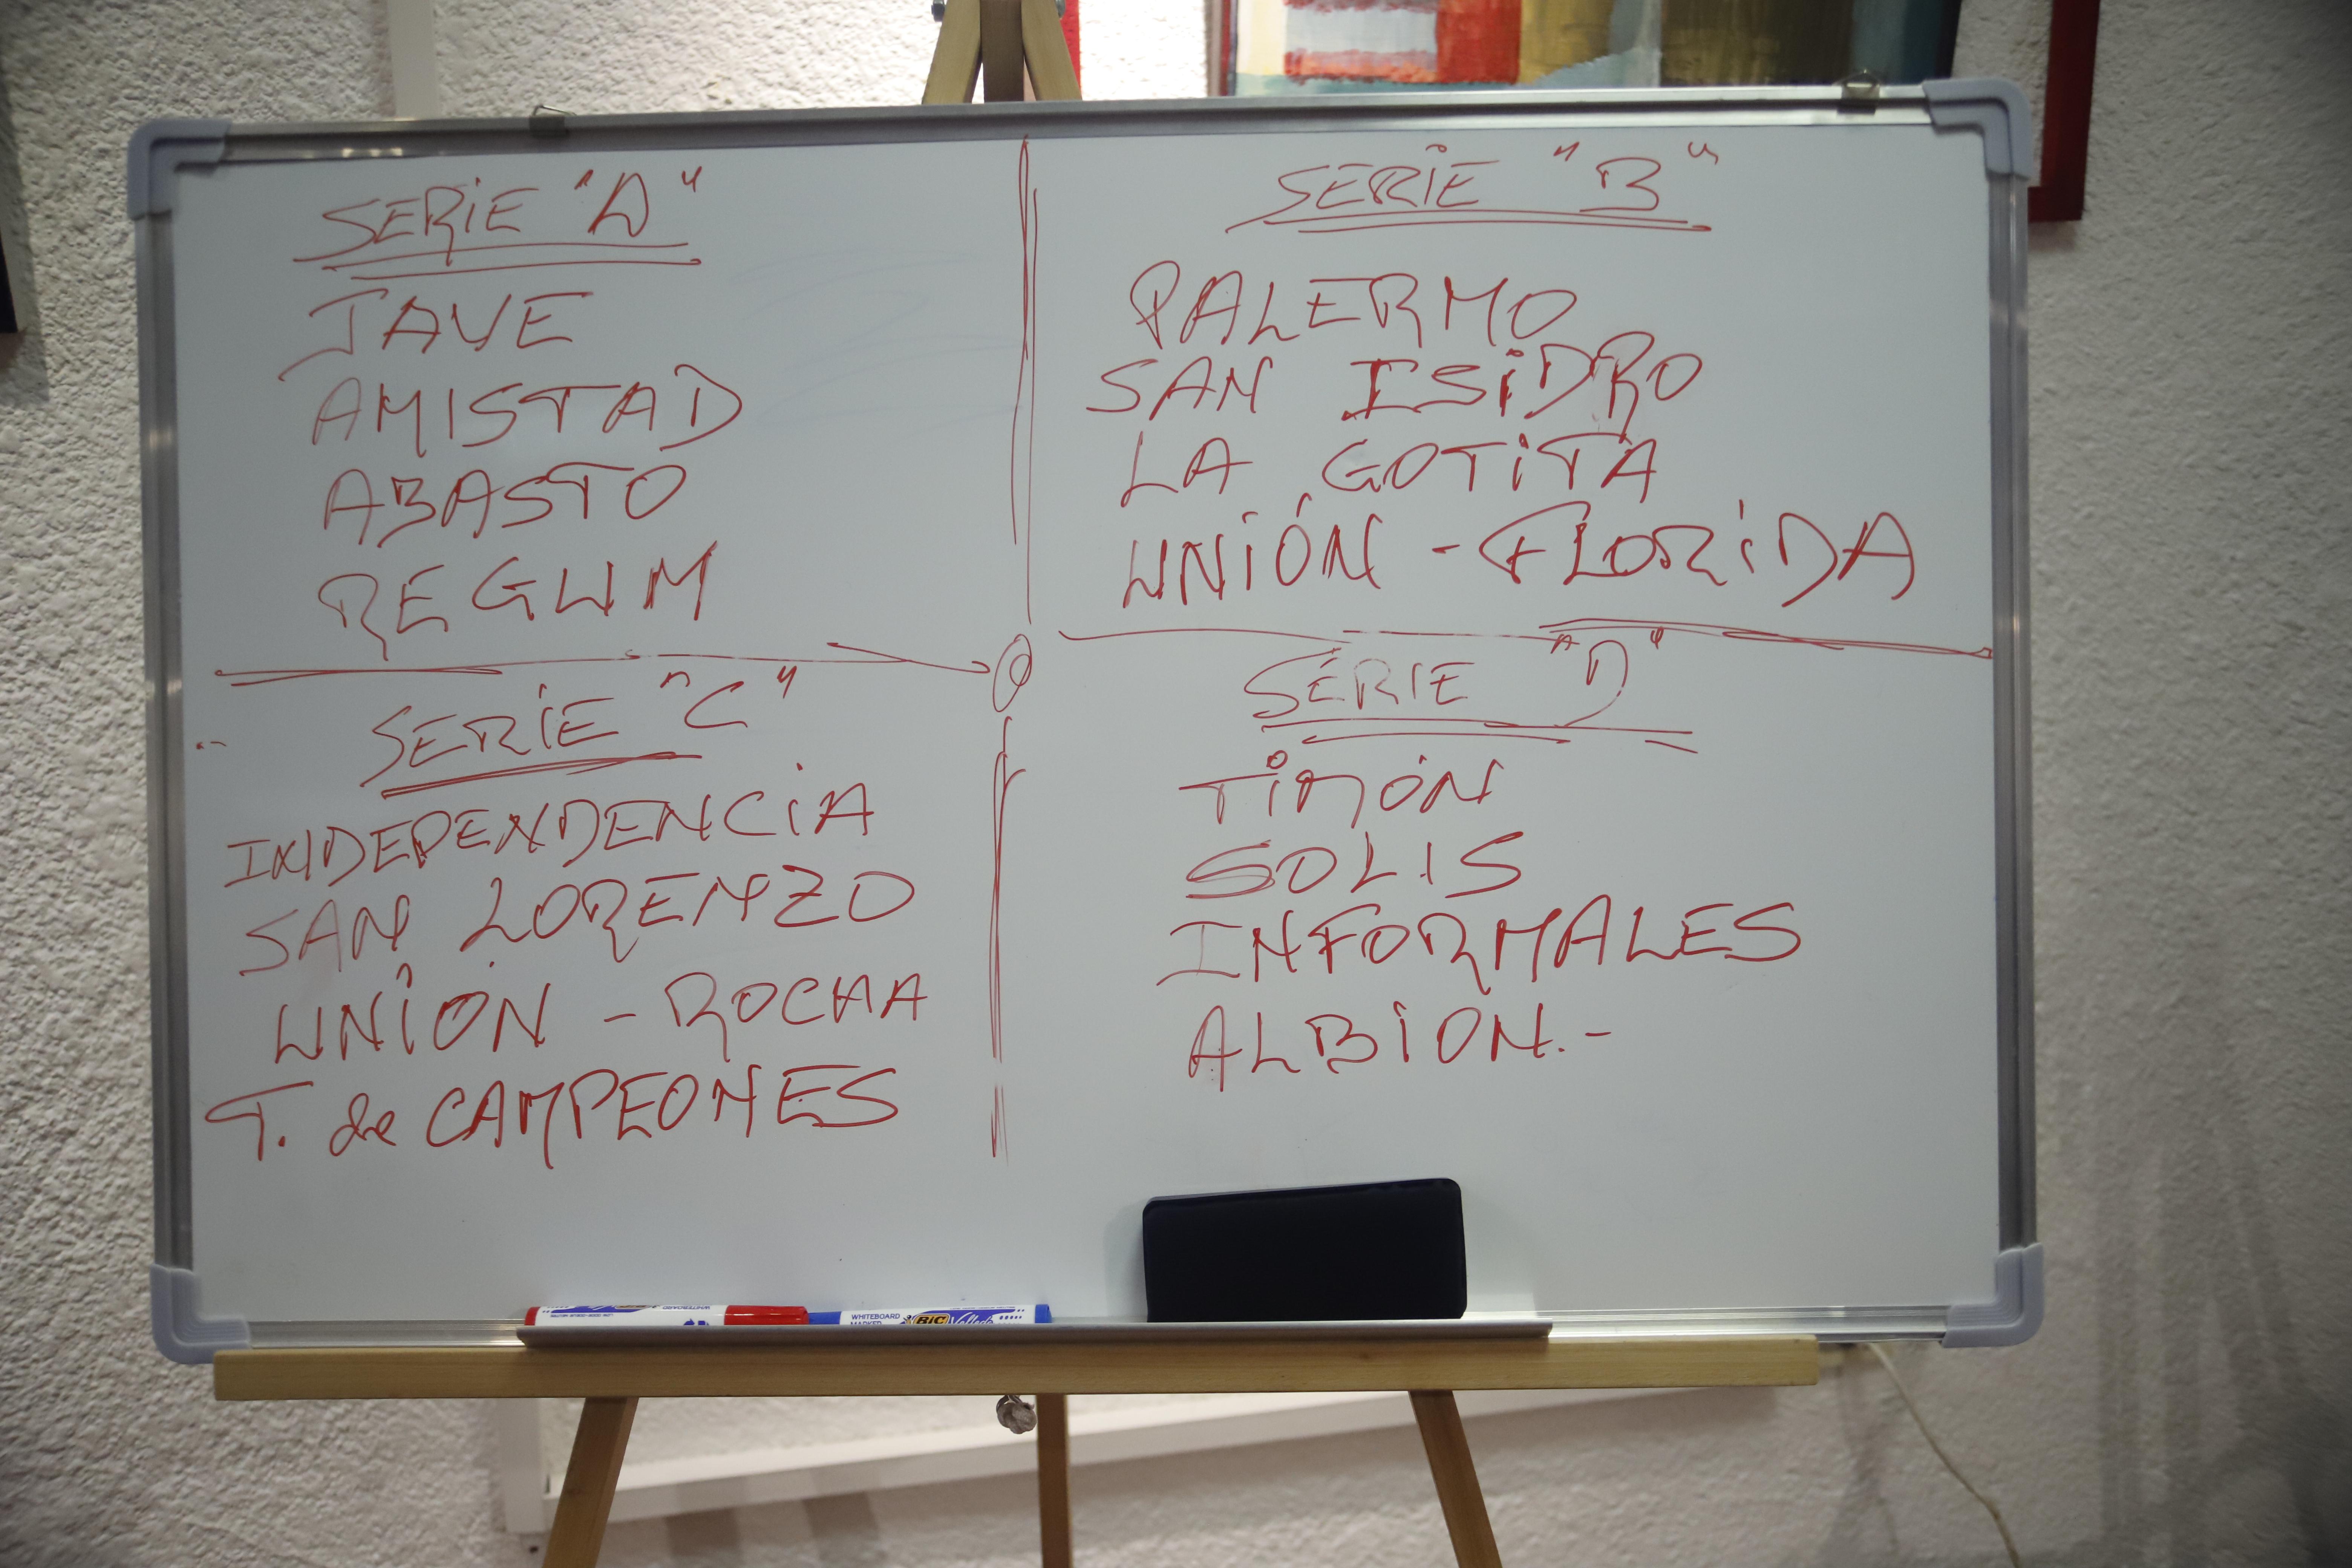 SERIE "A"
JAVE
AMISTAD
ABASTO
REGUM
SERIE "B"
PALERMO
SAN ISIDRO
LA GOTITA
UNIÓN - FLORIDA
SERIE "C"
INDEPENDENCIA
SAN LORENZO
UNIÓN - ROCHA
T. de CAMPEONES
SERIE "D"
TIMÓN
SOLIS
INFORMALES
ALBION.-
WHITEBOARD
MARKER
BIC Velleda